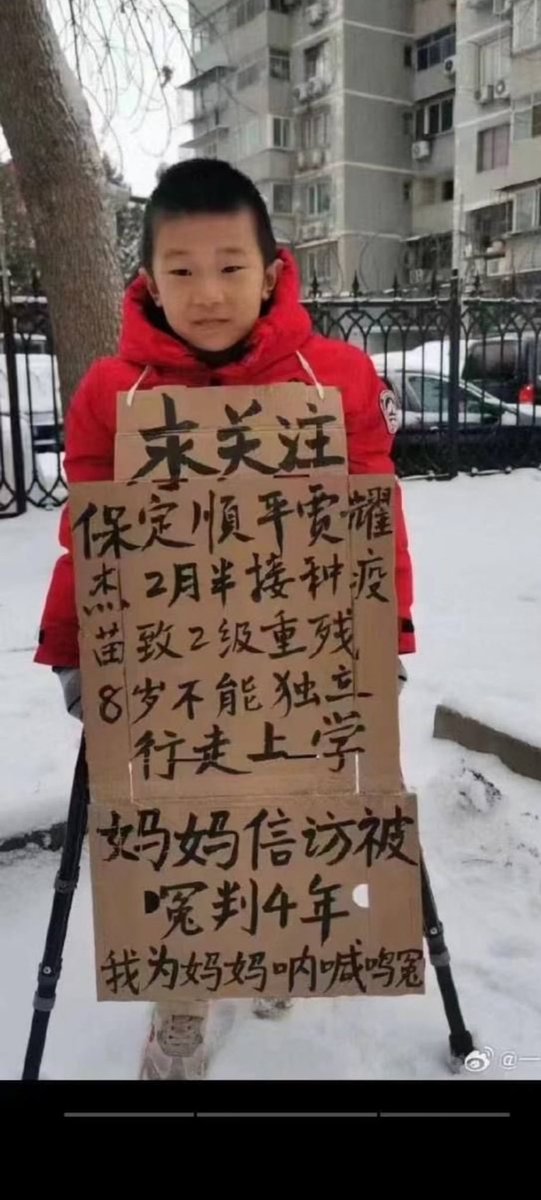 求关注
保定順平贾耀
杰2月半接种疫
苗致2级重残
8岁不能独立
行走上学
妈妈信访被
冤判4年
我为妈妈呐喊鸣冤
@一